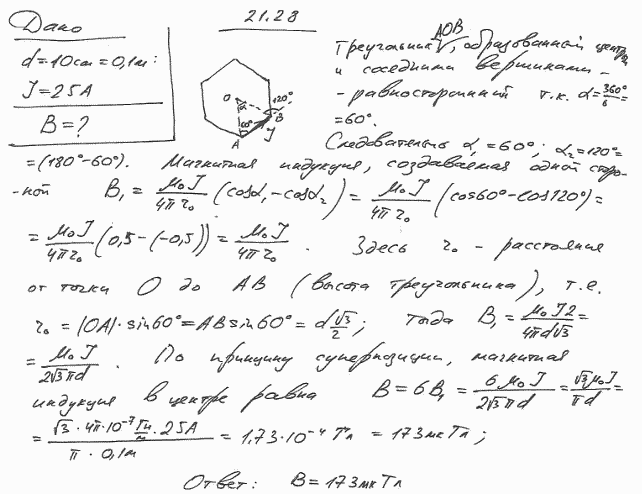 21.28
Дано
d=10см=0,1м:
J=25А
B=?
O α 60° 120° A B J
Треугольник AOB, образованный центром
и соседними вершинами -
- равносторонний т.к. α=360°/6=
=60°.
Следовательно α₁=60°; α₂=120°=
=(180°-60°). Магнитная индукция, создаваемая одной сторо-
-ной B₁ = μ₀J/4πr₀ (cosα₁-cosα₂) = μ₀J/4πr₀ (cos60°-cos120°)=
= μ₀J/4πr₀ (0,5-(-0,5)) = μ₀J/4πr₀ . Здесь r₀ - расстояние
от точки O до AB (высота треугольника), т.е.
r₀ = |OA|·sin60°=ABsin60°= d√3/2; тогда B₁= μ₀J2/4πd√3=
= μ₀J/2√3πd . По принципу суперпозиции, магнитная
индукция в центре равна B=6B₁ = 6μ₀J/2√3πd = √3μ₀J/πd =
= √3·4π·10⁻⁷Гн/м·25А/π·0,1м = 1.73·10⁻⁴ Тл = 173мкТл ;
Ответ: B=173мкТл